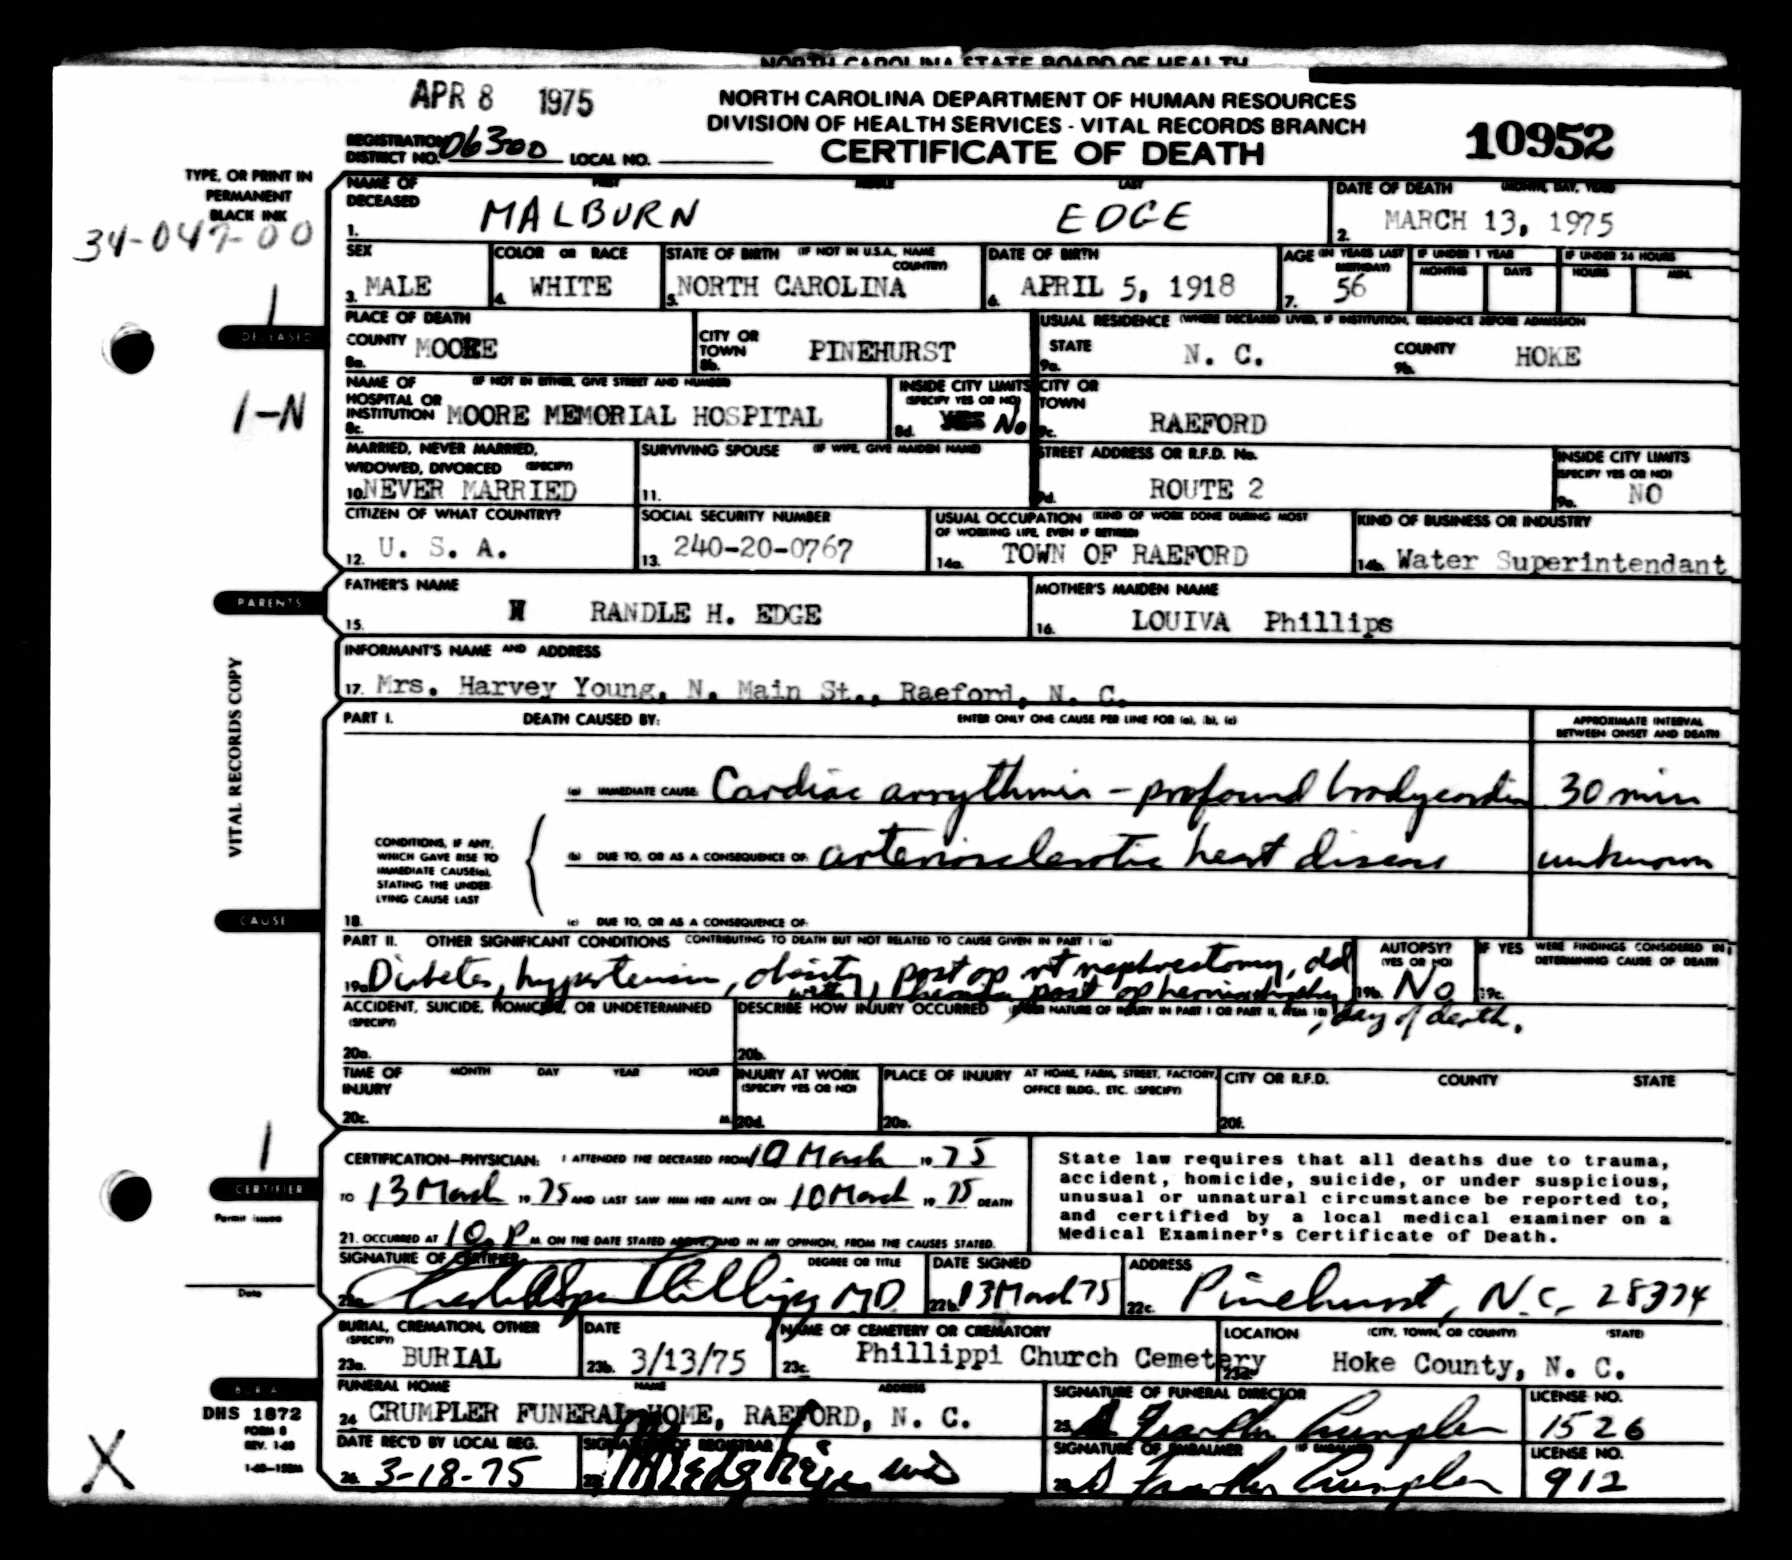 NORTH CAROLINA STATE BOARD OF HEALTH
APR 8 1975
NORTH CAROLINA DEPARTMENT OF HUMAN RESOURCES
DIVISION OF HEALTH SERVICES - VITAL RECORDS BRANCH
REGISTRATION DISTRICT NO. 06300 LOCAL NO.
CERTIFICATE OF DEATH
10952
TYPE, OR PRINT IN
PERMANENT
BLACK INK
34-047-00
NAME OF DECEASED FIRST MIDDLE LAST
1. MALBURN EDGE
DATE OF DEATH (MONTH, DAY, YEAR)
2. MARCH 13, 1975
SEX
3. MALE
COLOR OR RACE
4. WHITE
STATE OF BIRTH (IF NOT IN U.S.A., NAME COUNTRY)
5. NORTH CAROLINA
DATE OF BIRTH
6. APRIL 5, 1918
AGE (IN YEARS LAST BIRTHDAY)
7. 56
IF UNDER 1 YEAR
MONTHS DAYS
IF UNDER 24 HOURS
HOURS MIN.
1
DECEASED
1-N
PLACE OF DEATH
COUNTY MOORE
8a.
CITY OR TOWN PINEHURST
8b.
USUAL RESIDENCE (WHERE DECEASED LIVED, IF INSTITUTION, RESIDENCE BEFORE ADMISSION
STATE N. C.
9a.
COUNTY HOKE
9b.
NAME OF HOSPITAL OR INSTITUTION (IF NOT IN EITHER, GIVE STREET AND NUMBER)
8c. MOORE MEMORIAL HOSPITAL
INSIDE CITY LIMITS (SPECIFY YES OR NO)
8d. No
CITY OR TOWN
9c. RAEFORD
MARRIED, NEVER MARRIED,
WIDOWED, DIVORCED (SPECIFY)
10. NEVER MARRIED
SURVIVING SPOUSE (IF WIFE, GIVE MAIDEN NAME)
11.
STREET ADDRESS OR R.F.D. No.
9d. ROUTE 2
INSIDE CITY LIMITS
(SPECIFY YES OR NO)
9e. NO
CITIZEN OF WHAT COUNTRY?
12. U. S. A.
SOCIAL SECURITY NUMBER
13. 240-20-0767
USUAL OCCUPATION (KIND OF WORK DONE DURING MOST
OF WORKING LIFE, EVEN IF RETIRED)
14a. TOWN OF RAEFORD
KIND OF BUSINESS OR INDUSTRY
14b. Water Superintendant
PARENTS
FATHER'S NAME
15. RANDLE H. EDGE
MOTHER'S MAIDEN NAME
16. LOUIVA Phillips
INFORMANT'S NAME AND ADDRESS
17. Mrs. Harvey Young, N. Main St., Raeford, N. C.
VITAL RECORDS COPY
PART I. DEATH CAUSED BY: ENTER ONLY ONE CAUSE PER LINE FOR (a), (b), (c)
APPROXIMATE INTERVAL
BETWEEN ONSET AND DEATH
(a) IMMEDIATE CAUSE: Cardiac arrythmia - profound bradycardia 30 min
CONDITIONS, IF ANY,
WHICH GAVE RISE TO
IMMEDIATE CAUSE(a),
STATING THE UNDER-
LYING CAUSE LAST
(b) DUE TO, OR AS A CONSEQUENCE OF: arteriosclerotic heart disease unknown
CAUSE
18.
(c) DUE TO, OR AS A CONSEQUENCE OF:
PART II. OTHER SIGNIFICANT CONDITIONS CONTRIBUTING TO DEATH BUT NOT RELATED TO CAUSE GIVEN IN PART I (a)
19a. Diabetes, hypertension, obesity, post op rt nephrectomy, old
post op herniorrhaphy
, day of death.
AUTOPSY?
(YES OR NO)
19b. No
IF YES WERE FINDINGS CONSIDERED IN
DETERMINING CAUSE OF DEATH
19c.
ACCIDENT, SUICIDE, HOMICIDE, OR UNDETERMINED
(SPECIFY)
20a.
DESCRIBE HOW INJURY OCCURRED (ENTER NATURE OF INJURY IN PART I OR PART II, ITEM 18)
20b.
TIME OF INJURY MONTH DAY YEAR HOUR
20c. M.
INJURY AT WORK
(SPECIFY YES OR NO)
20d.
PLACE OF INJURY AT HOME, FARM, STREET, FACTORY,
OFFICE BLDG., ETC. (SPECIFY)
20e.
CITY OR R.F.D. COUNTY STATE
20f.
1
CERTIFIER
Permit issued
Date
CERTIFICATION—PHYSICIAN: I ATTENDED THE DECEASED FROM 10 March 19 75
TO 13 March 19 75 AND LAST SAW HIM HER ALIVE ON 10 March 19 75 DEATH
21. OCCURRED AT 10 P M. ON THE DATE STATED ABOVE, AND IN MY OPINION, FROM THE CAUSES STATED.
State law requires that all deaths due to trauma,
accident, homicide, suicide, or under suspicious,
unusual or unnatural circumstance be reported to,
and certified by a local medical examiner on a
Medical Examiner's Certificate of Death.
SIGNATURE OF CERTIFIER DEGREE OR TITLE
22a. Phillips MD
DATE SIGNED
22b. 13 March 75
ADDRESS
22c. Pinehurst, N.C. 28374
BURIAL, CREMATION, OTHER
(SPECIFY)
23a. BURIAL
DATE
23b. 3/13/75
NAME OF CEMETERY OR CREMATORY
23c. Phillippi Church Cemetery
LOCATION (CITY, TOWN, OR COUNTY) (STATE)
23d. Hoke County, N. C.
BURIAL
DHS 1872
FORM 8
REV. 1-69
X
FUNERAL HOME NAME ADDRESS
24. CRUMPLER FUNERAL HOME, RAEFORD, N. C.
SIGNATURE OF FUNERAL DIRECTOR
25. Franklin Crumpler
LICENSE NO.
1526
DATE REC'D BY LOCAL REG.
26. 3-18-75
SIGNATURE OF REGISTRAR
SIGNATURE OF EMBALMER (IF EMBALMED)
Franklin Crumpler
LICENSE NO.
912